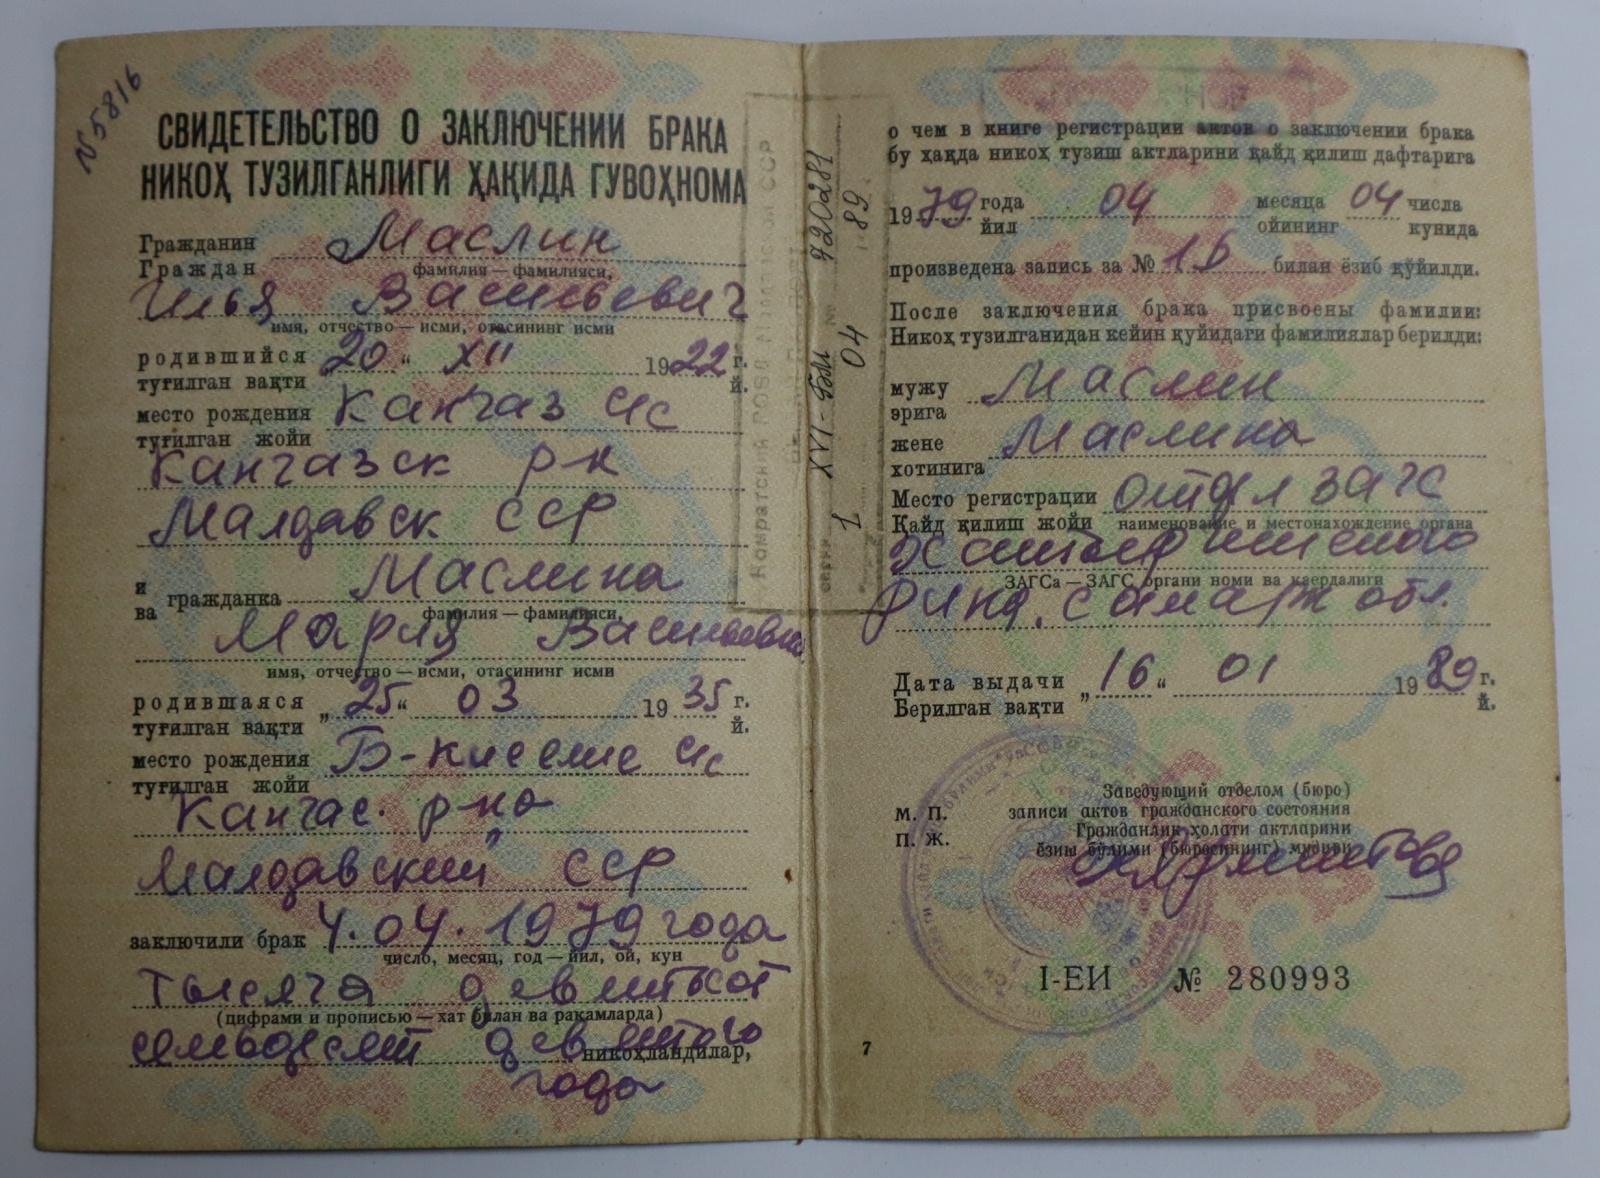 №5816
СВИДЕТЕЛЬСТВО О ЗАКЛЮЧЕНИИ БРАКА
НИКОҲ ТУЗИЛГАНЛИГИ ҲАҚИДА ГУВОҲНОМА
Гражданин Маслин
Граждан фамилия — фамилияси,
Илья Васильевич
имя, отчество — исми, отасининг исми
родившийся 20 " XII 1922 г.
туғилган вақти й.
место рождения Кангаз
туғилган жойи
Кангазск р-н
Малдавск ССР
и
ва гражданка Маслина
фамилия — фамилияси,
Мария Васильевна
имя, отчество — исми, отасининг исми
родившаяся „25“ 03 1935 г.
туғилган вақти й.
место рождения
туғилган жойи
Кангас. р-на
Малдавский ССР
заключили брак 4.04.1979 года
число, месяц, год — йил, ой, кун
тысяча девятьсот
(цифрами и прописью — хат билан ва рақамларда)
семьдесят девятого никоҳландилар,
года
Комратский ССР
XVI-БМ № 720281
1 04 89
о чем в книге регистрации актов о заключении брака
бу ҳақда никоҳ тузиш актларини қайд қилиш дафтарига
1979 года 04 месяца 04 числа
йил ойининг кунида
произведена запись за № билан ёзиб қўйилди.
После заключения брака присвоены фамилии:
Никоҳ тузилганидан кейин қуйидаги фамилиялар берилди:
мужу Маслин
эрига
жене Маслина
хотинига
Место регистрации отдел загс
Қайд қилиш жойи наименование и местонахождение органа
ЗАГСа — ЗАГС органи номи ва каердалиги
обл.
Дата выдачи „16“ 01 1989 г.
Берилган вақти й.
Заведующий отделом (бюро)
М. П. записи актов гражданского состояния
П. Ж. Гражданлик ҳолати актларини
ёзиш бўлими (бюросининг) мудири
I-ЕИ № 280993
7